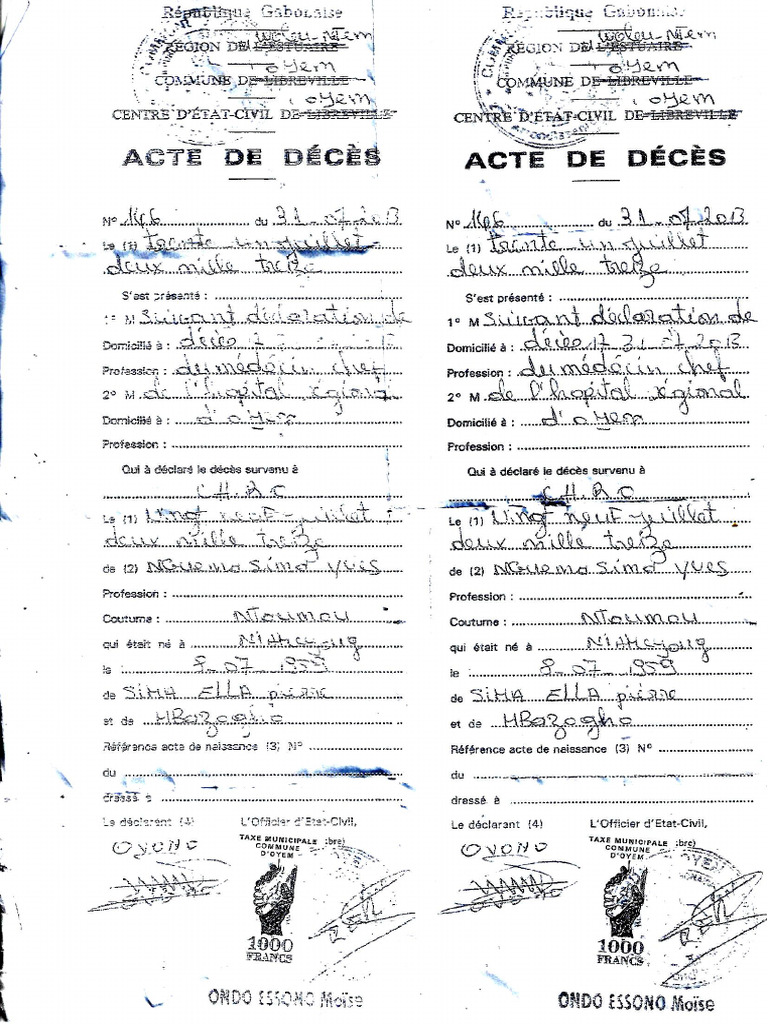 République Gabonaise
Woleu-Ntem
RÉGION DE L'ESTUAIRE
oyem
COMMUNE DE LIBREVILLE
oyem
CENTRE D'ÉTAT-CIVIL DE LIBREVILLE
ACTE DE DÉCÈS
N° 146 du 31-07-2013
Le (1) Trente un juillet
deux mille treize
S'est présenté :
1° M Suivant déclaration de
Domicilié à : décès
Profession : du médécin chef
2° M. de l'hopital régional
Domicilié à : d'oyem
Profession :
Qui à déclaré le décès survenu à
C.H.R.O
Le (1) Vingt neuf juillet
deux mille treize
de (2) NGuema Sima YVES
Profession :
Coutume : NToumou
qui était né à
le 9-07-1959
de SiMA ELLA pierre
et de MBazogho
Référence acte de naissance (3) N°
du
dressé à
Le déclarant (4) L'Officier d'Etat-Civil,
OYONO
TAXE MUNICIPALE
COMMUNE
D'OYEM
1000
FRANCS
ONDO ESSONO Moïse
République Gabonaise
Woleu-Ntem
RÉGION DE L'ESTUAIRE
oyem
COMMUNE DE LIBREVILLE
oyem
CENTRE D'ÉTAT-CIVIL DE LIBREVILLE
ACTE DE DÉCÈS
N° 146 du 31-07-2013
Le (1) Trente un juillet
deux mille treize
S'est présenté :
1° M Suivant déclaration de
Domicilié à : décès 17 31-07-2013
Profession : du médécin chef
2° M. de l'hopital régional
Domicilié à : d'oyem
Profession :
Qui à déclaré le décès survenu à
C.H.R.O
Le (1) Vingt neuf juillet
deux mille treize
de (2) NGuema Sima YVES
Profession :
Coutume : NToumou
qui était né à
le 9-07-1959
de SiMA ELLA pierre
et de MBazogho
Référence acte de naissance (3) N°
du
dressé à
Le déclarant (4) L'Officier d'Etat-Civil,
OYONO
TAXE MUNICIPALE
COMMUNE
D'OYEM
1000
FRANCS
ONDO ESSONO Moïse